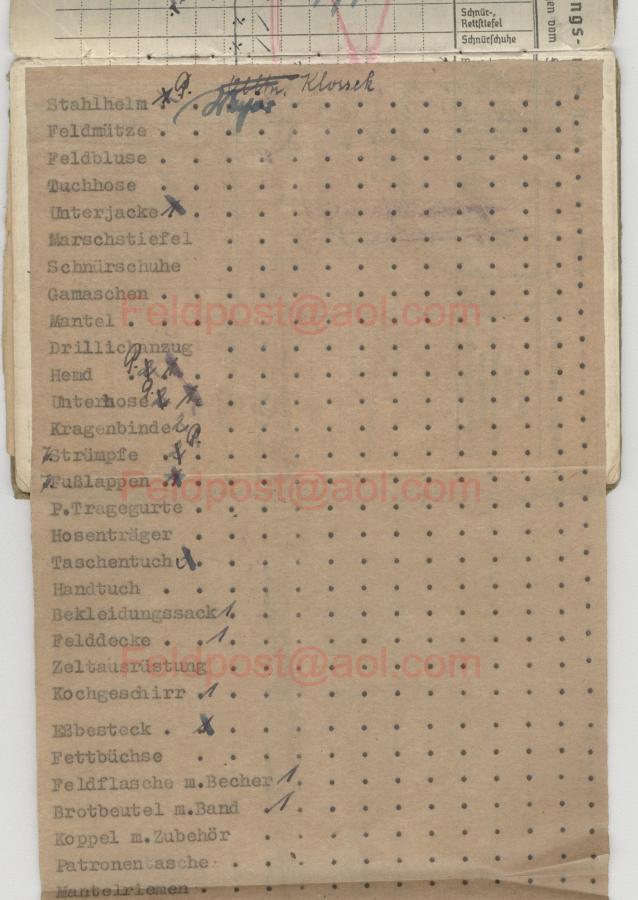 Schnür-,
Reitstiefel
Schnürschuhe
ngs-
en vom
Klorsek
Stahlhelm P.
Feldmütze
Feldbluse
Tuchhose
Unterjacke
Marschstiefel
Schnürschuhe
Gamaschen
Feldpost@aol.com
Mantel
Drillichanzug
Hemd P.
Unterhose P.
Kragenbinde 2 P.
Strümpfe
Fußlappen
Feldpost@aol.com
P.Tragegurte
Hosenträger
Taschentuch
Handtuch
Bekleidungssack 1
Felddecke 1
Zeltausrüstung
Feldpost@aol.com
Kochgeschirr 1
Eßbesteck
Fettbüchse
Feldflasche m.Becher 1
Brotbeutel m.Band 1
Koppel m.Zubehör
Patronentasche
Mantelriemen